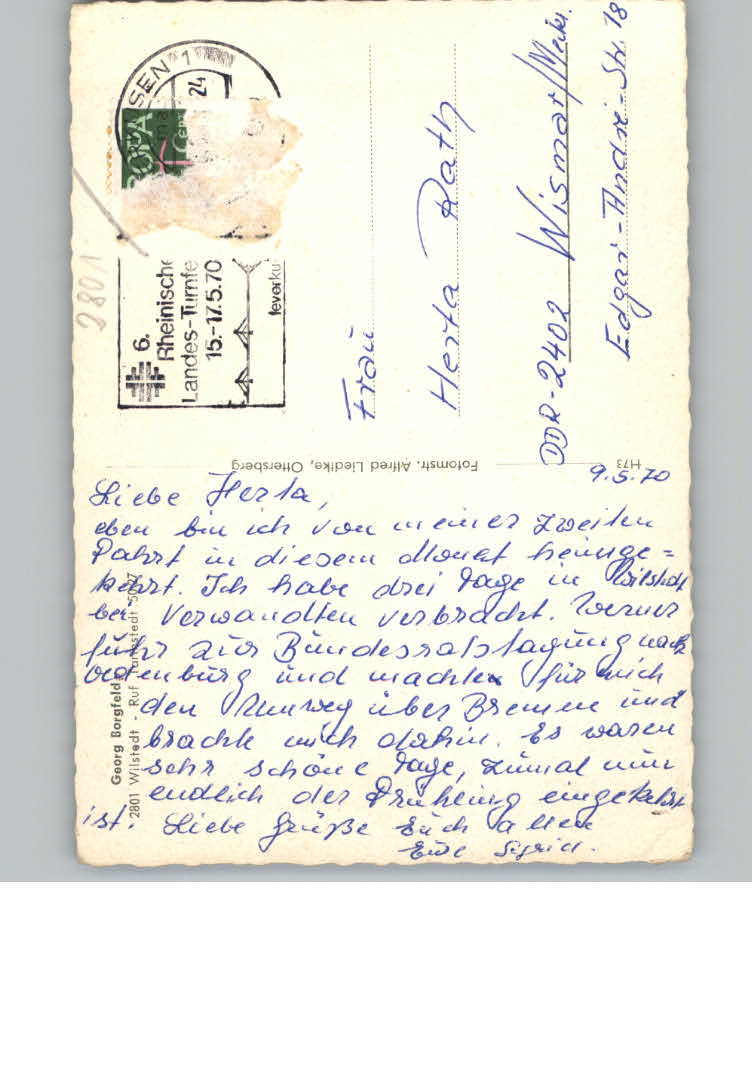 9.5.70
Liebe Herta,
eben bin ich von meiner zweiten
Fahrt in diesem Monat heimge=
kehrt. Ich habe drei Tage in Wilstedt
bei Verwandten verbracht. Werner
fuhr zur Bundesratstagung nach
Oldenburg und machte für mich
den Umweg über Bremen und
brachte mich dahin. Es waren
sehr schöne Tage, zumal nun
endlich der Frühling eingekehrt
ist. Liebe Grüße Euch allen
Eure Sigrid.
Georg Borgfeld
2801 Wilstedt - Ruf Tarmstedt
Fotomstr. Alfred Liedtke, Ottersberg
H73
Frau
Herta Rath
DDR-2402 Wismar/Meckl.
Edgar-André-Str. 18
2801
SEN 1
24
OPA
CEPT
6.
Rheinische
Landes-Turnfe
15.-17.5.70
leverku